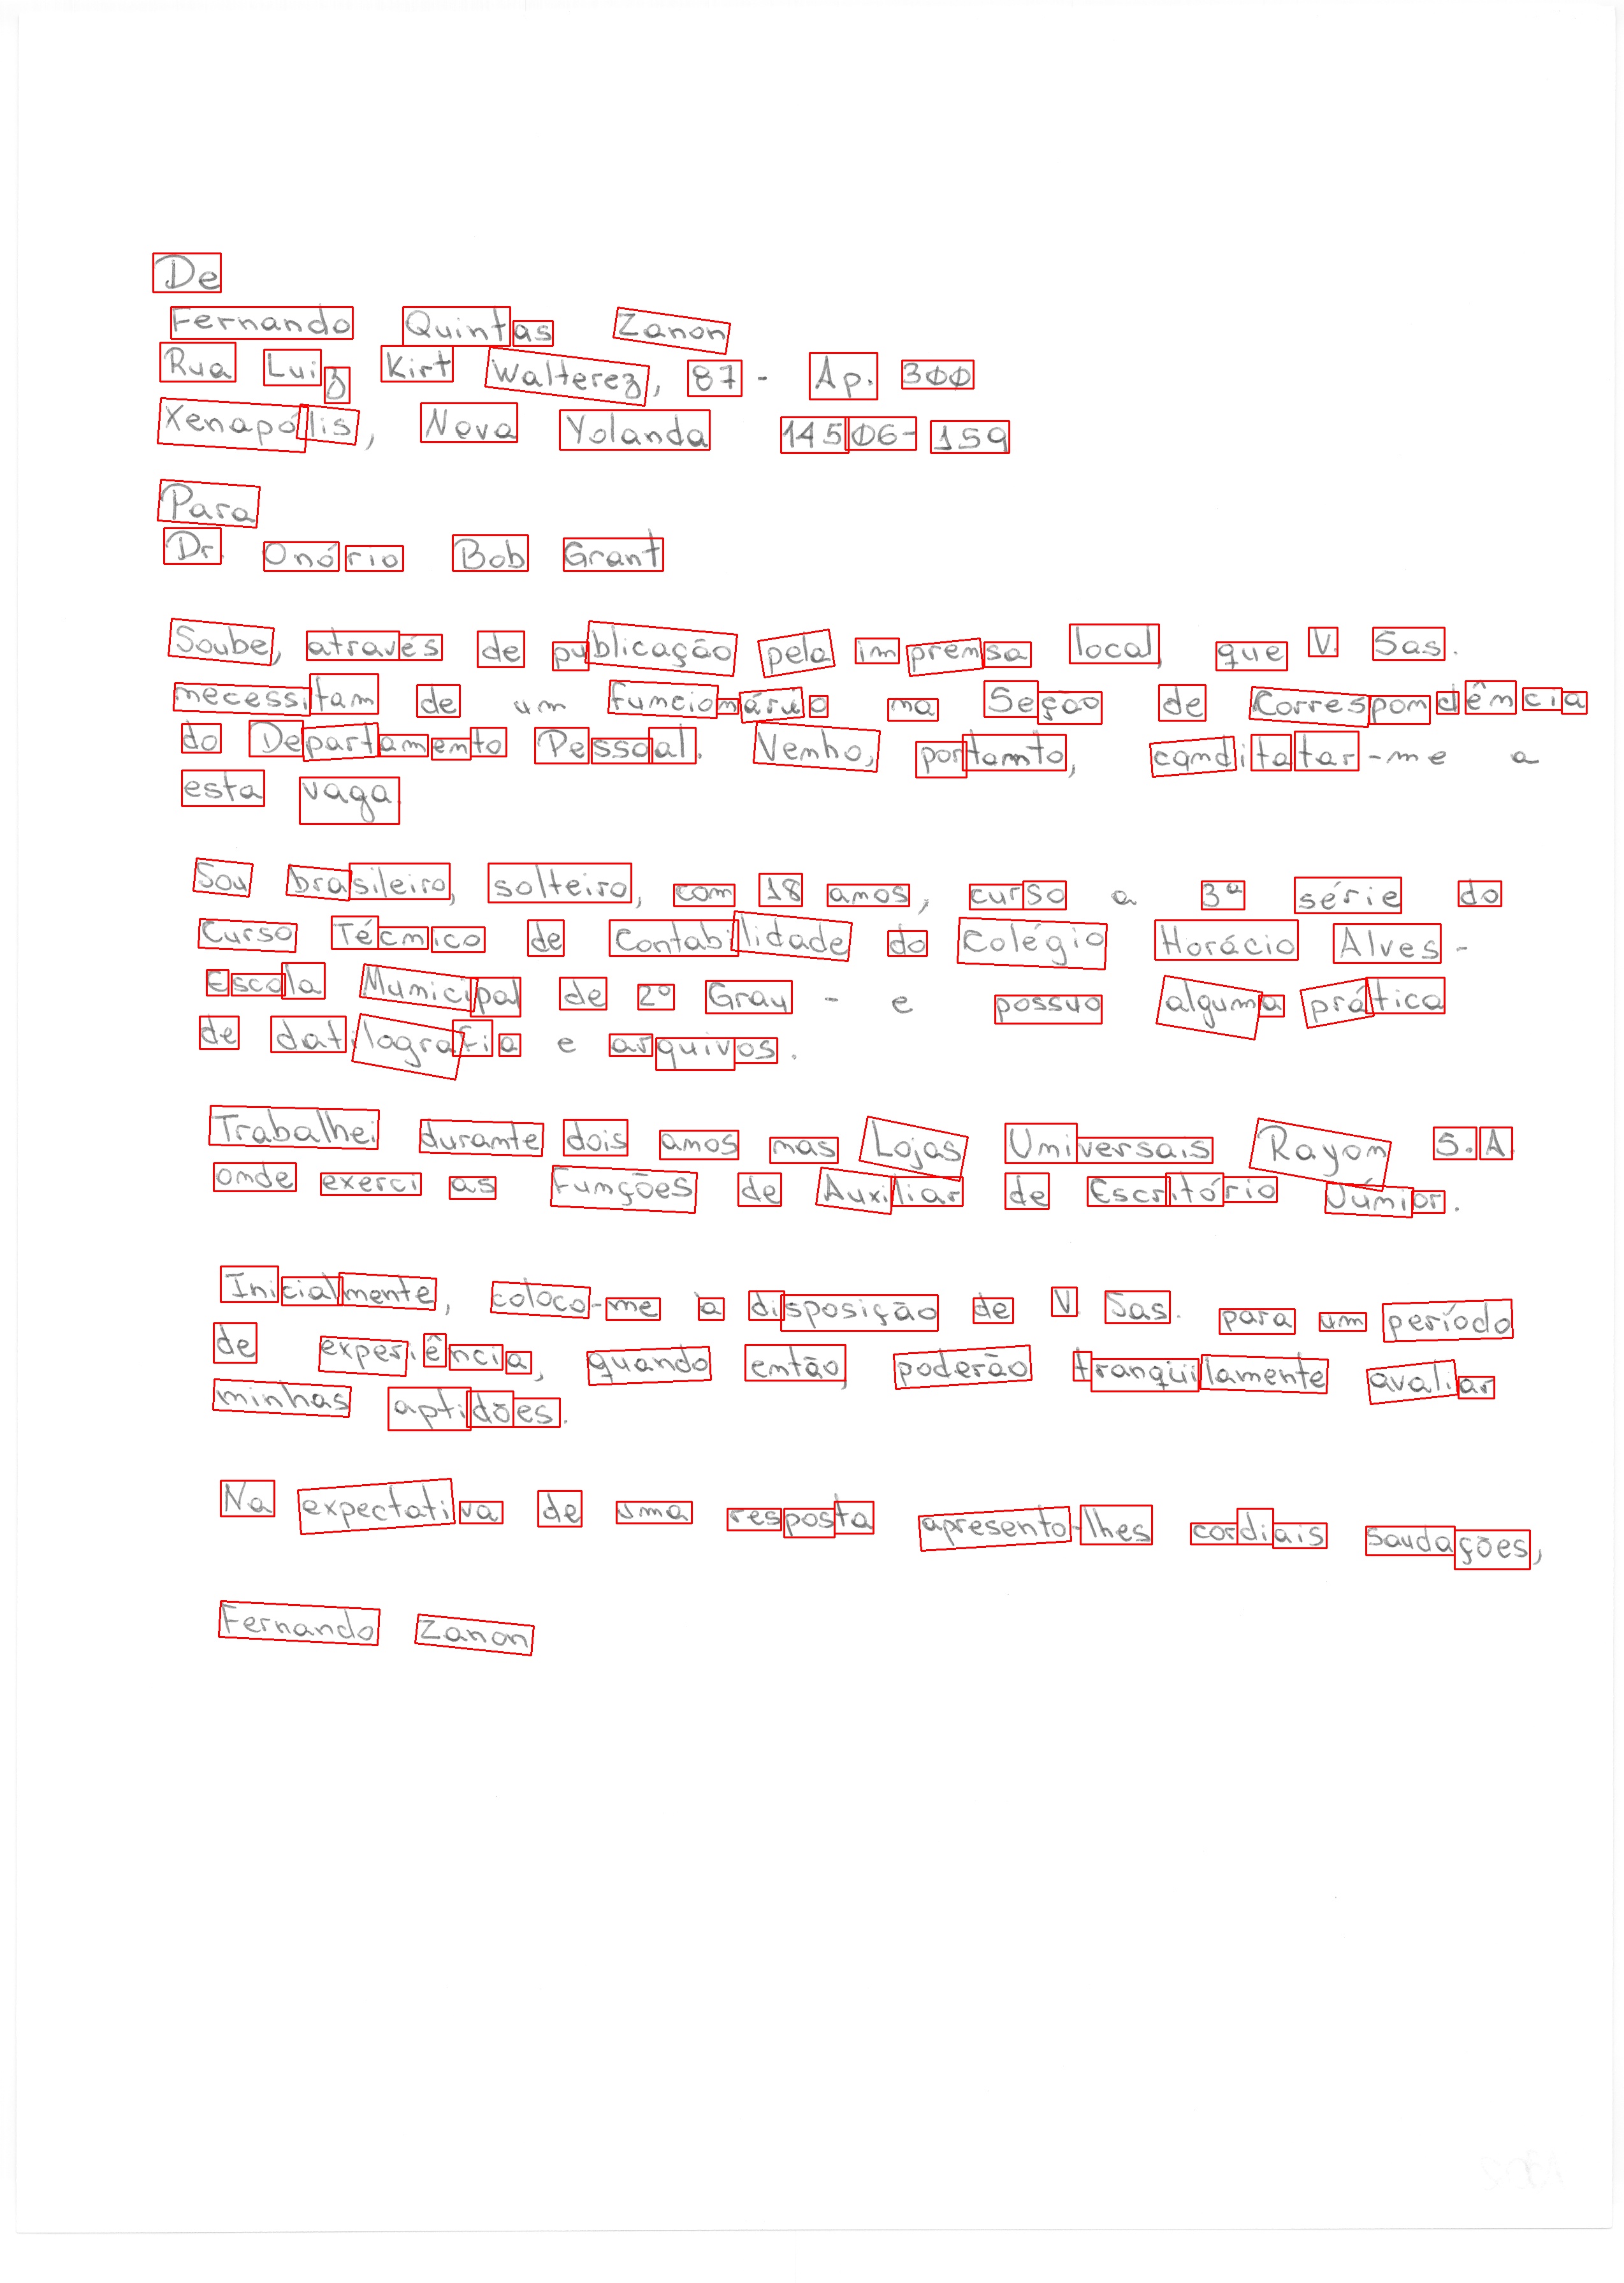 De
Fernando Quintas Zanon
Rua Luiz Kirt Walterez, 87 - Ap. 300
Xenapólis, Nova Yolanda 14506-159
Para
Dr. Onório Bob Grant
Soube, através de publicação pela imprensa local, que V. Sas.
necessitam de um funcionário na Seção de Correspondência
do Departamento Pessoal. Venho, portanto, canditatar-me a
esta vaga.
Sou brasileiro, solteiro, com 18 anos, curso a 3ª série do
Curso Técnico de Contabilidade do Colégio Horácio Alves -
Escola Municipal de 2º Grau - e possuo alguma prática
de datilografia e arquivos.
Trabalhei durante dois anos nas Lojas Universais Rayon S.A
onde exerci as funções de Auxiliar de Escritório Júnior.
Inicialmente, coloco-me à disposição de V. Sas. para um período
de experiência, quando então, poderão tranqüilamente avaliar
minhas aptidões.
Na expectativa de uma resposta apresento-lhes cordiais saudações,
Fernando Zanon